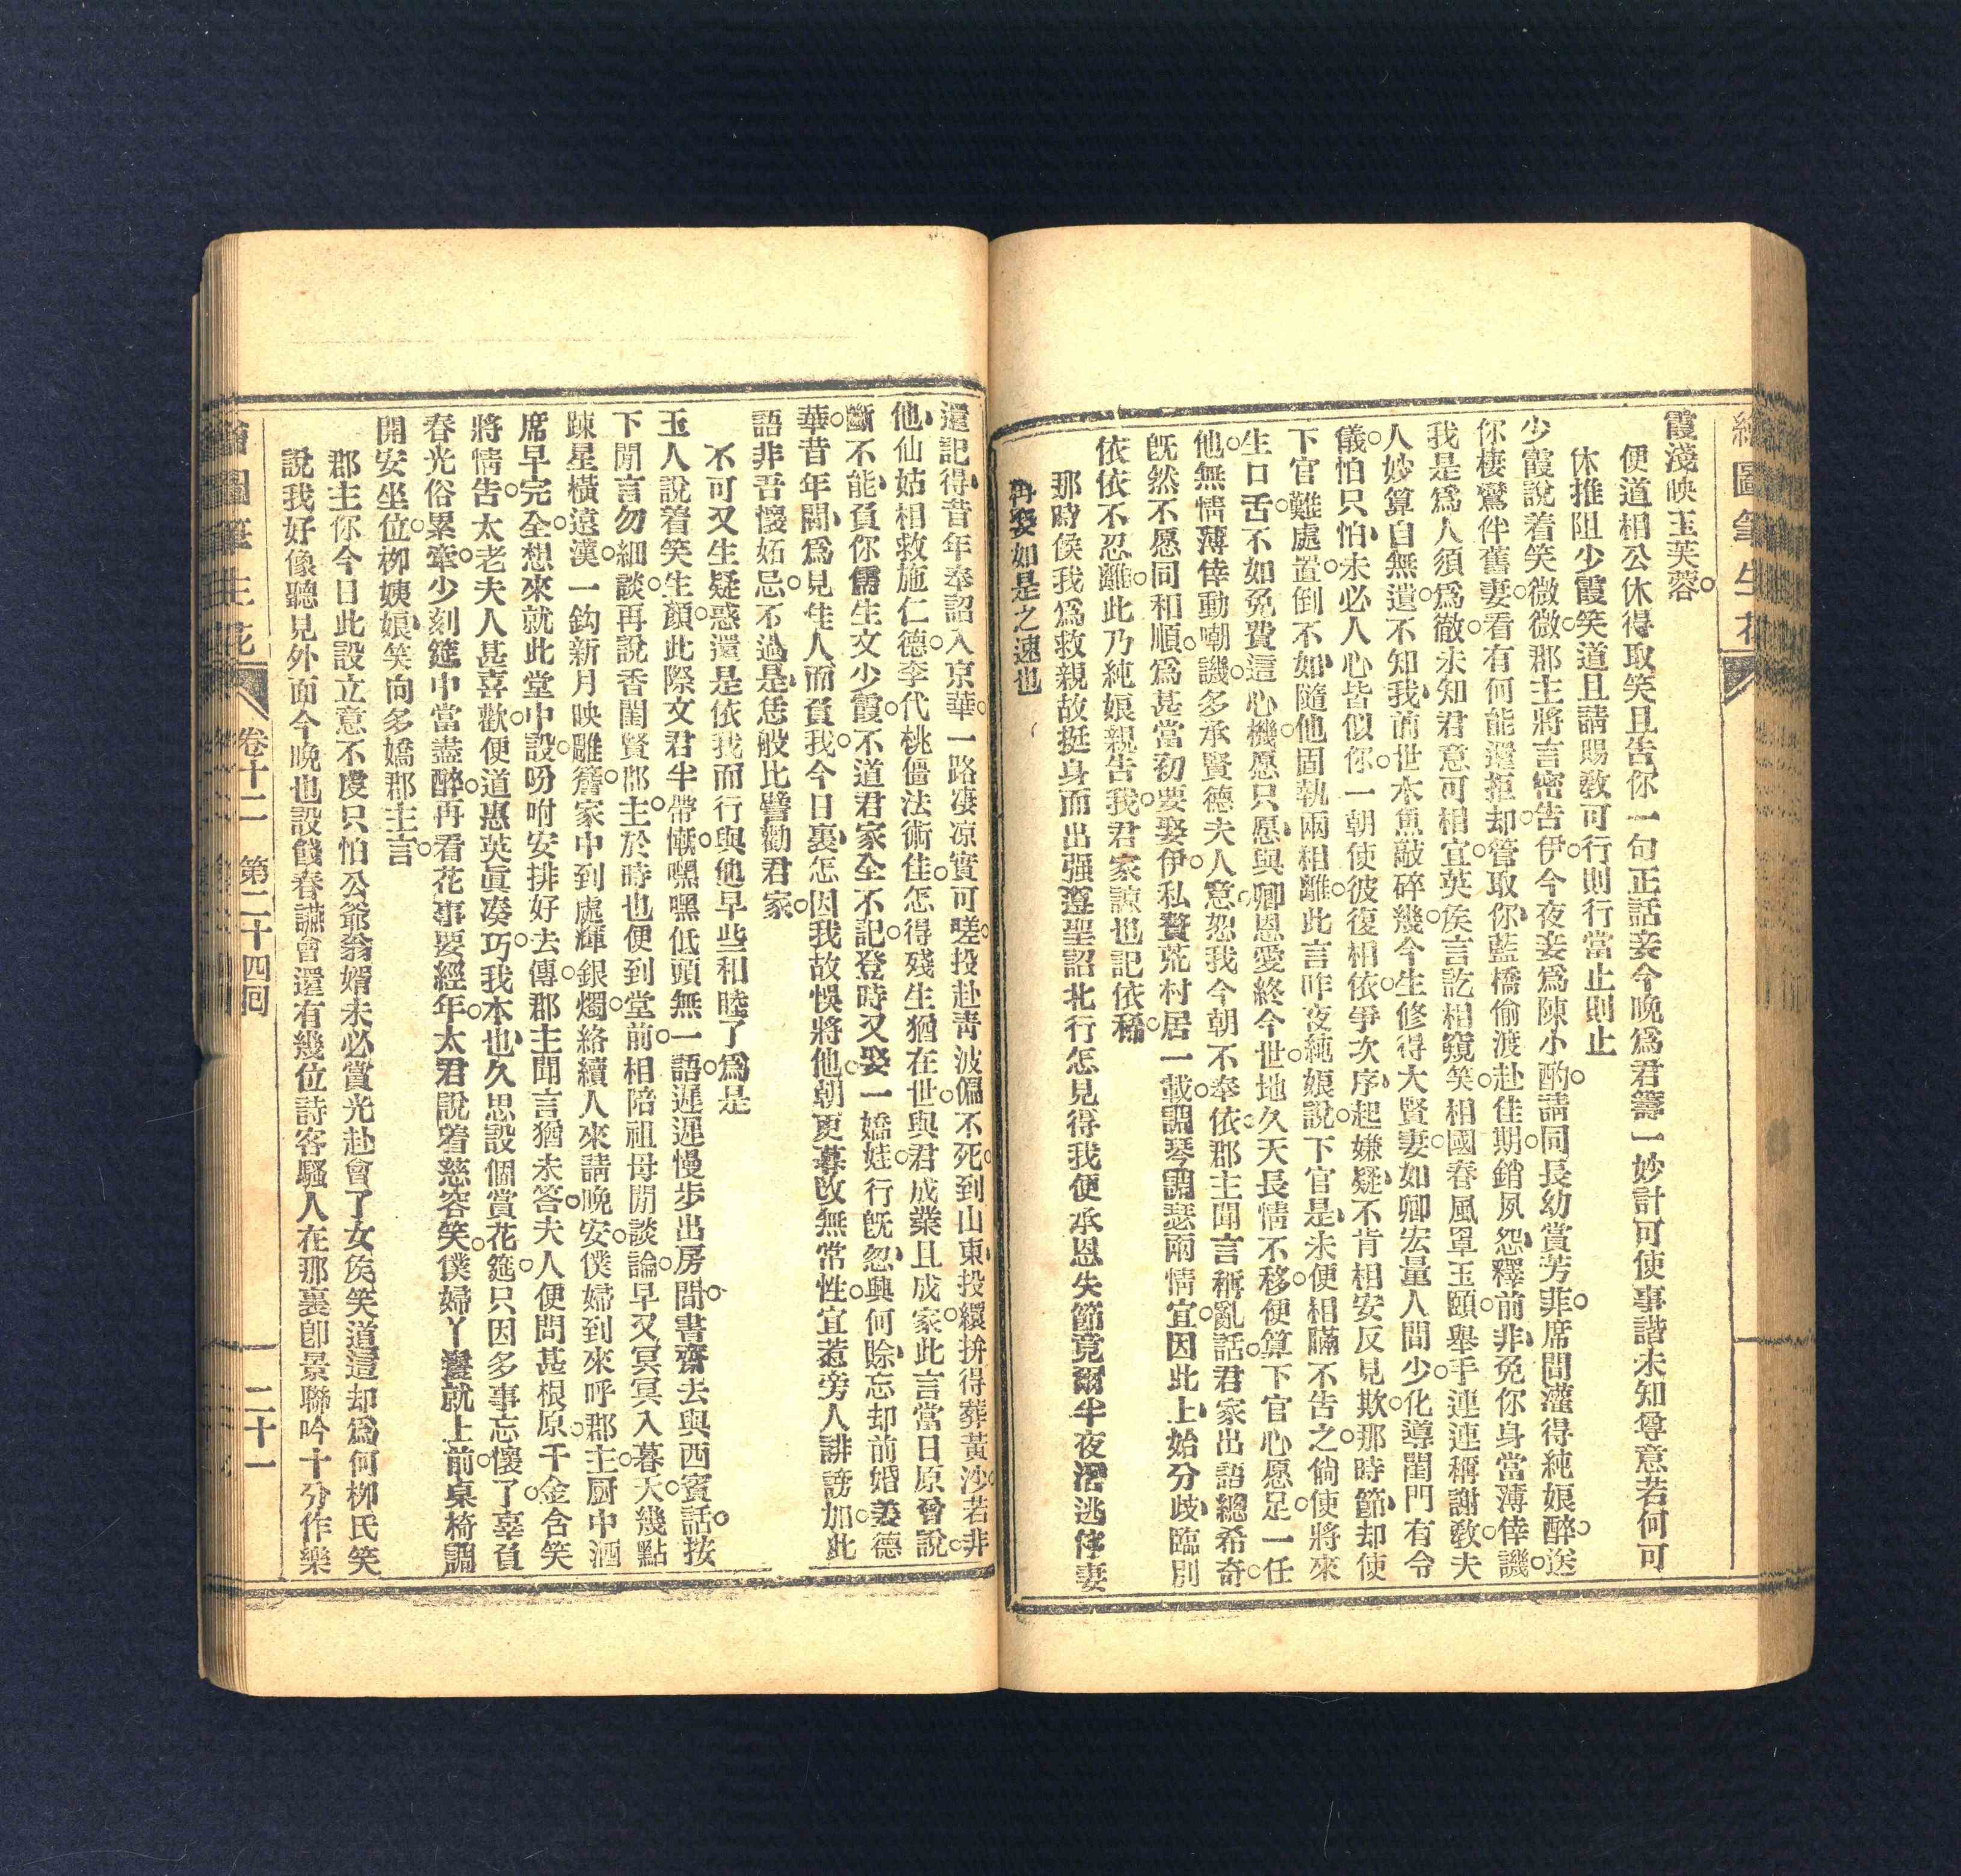 繪圖筆生花
霞淺映玉芙蓉。
便道相公休得取笑且告你一句正話妾今晚爲君籌一妙計可使事諧未知尊意若何可
休推阻少霞笑道且請賜教可行則行當止則止
少霞說着笑微微。郡主將言密告伊。今夜妾爲陳小酌。請同長幼賞芳菲。席間灌得純娘醉。送
你棲鸞伴舊妻。看有何能還拒却。管取你藍橋偷渡赴佳期。銷夙怨、釋前非、免你身當薄倖譏。
我是爲人須爲徹。未知君意可相宜。英侯言訖相窺笑。相國春風罩玉頤。舉手連連稱謝教。夫
人妙算自無遺。不知我、前世木魚敲碎幾。今生修得大賢妻。如卿宏量人間少。化導閨門有令
儀。怕只怕、未必人心皆似你。一朝使彼復相依。爭次序、起嫌疑、不肯相安反見欺。那時節、却使
下官難處置。倒不如、隨他固執兩相離。此言昨夜純娘說。下官是、未便相瞞不告之。倘使將來
生口舌。不如免費這心機。愿只愿、與卿恩愛終今世。地久天長情不移。便算下官心愿足。一任
他、無情薄倖動嘲譏。多承賢德夫人意。恕我今朝不奉依。郡主聞言稱亂話。君家出語總希奇。
旣然不愿同和順。爲甚當初要娶伊。私贅荒村居一載。調琴調瑟兩情宜。因此上、始分歧、臨別
依依不忍離。此乃純娘親告我。君家諒也記依稀。
那時侯我爲救親故挺身而出强遵聖詔北行怎見得我便承恩失節竟爾半夜潛逃停妻
再娶如是之速也
還記得、昔年奉詔入京華。一路凄凉實可嗟。投赴靑波偏不死。到山東、投繯拚得葬黃沙。若非
他、仙姑相救施仁德。李代桃僵法術佳。怎得殘生猶在世。與君成業且成家。此言當日原曾說。
斷不能、負你儒生文少霞。不道君家全不記。登時又娶一嬌娃。行旣忽、興何賒、忘却前婚姜德
華。昔年間、爲見佳人而負我。今日裏、怎因我故悞將他。朝更暮改無常性。宜惹旁人誹謗加。此
語非吾懷妬忌。不過是、恁般比譬勸君家。
不可又生疑惑還是依我而行與他早些和睦了爲是
玉人說着笑生顏。此際文君半帶慚。嘿嘿低頭無一語。遲遲慢步出房間。書齋去與西賓話。按
下閒言勿細談。再說香閨賢郡主。於時也便到堂前。相陪祖母閒談論。早又冥冥入暮天。幾點
疎星橫遠漢。一鈎新月映雕簷。家中到處輝銀燭。絡續人來請晚安。僕婦到來呼郡主。厨中酒
席早完全。想來就此堂中設。吩咐安排好去傳。郡主聞言猶未答。夫人便問甚根原。千金含笑
將情告。太老夫人甚喜歡。便道惠英眞凑巧。我本也、久思設個賞花筵。只因多事忘懷了。辜負
春光俗累牽。少刻筵中當盡醉。再看花事要經年。太君說着慈容笑。僕婦丫鬟就上前。桌椅調
開安坐位。柳姨娘、笑向多嬌郡主言。
郡主你今日此設立意不虔只怕公爺翁婿未必賞光赴會了女侯笑道這却爲何柳氏笑
說我好像聽見外面今晚也設餞春讌會還有幾位詩客騷人在那裏卽景聯吟十分作樂
繪圖筆生花
卷十二　第二十四回
二十一